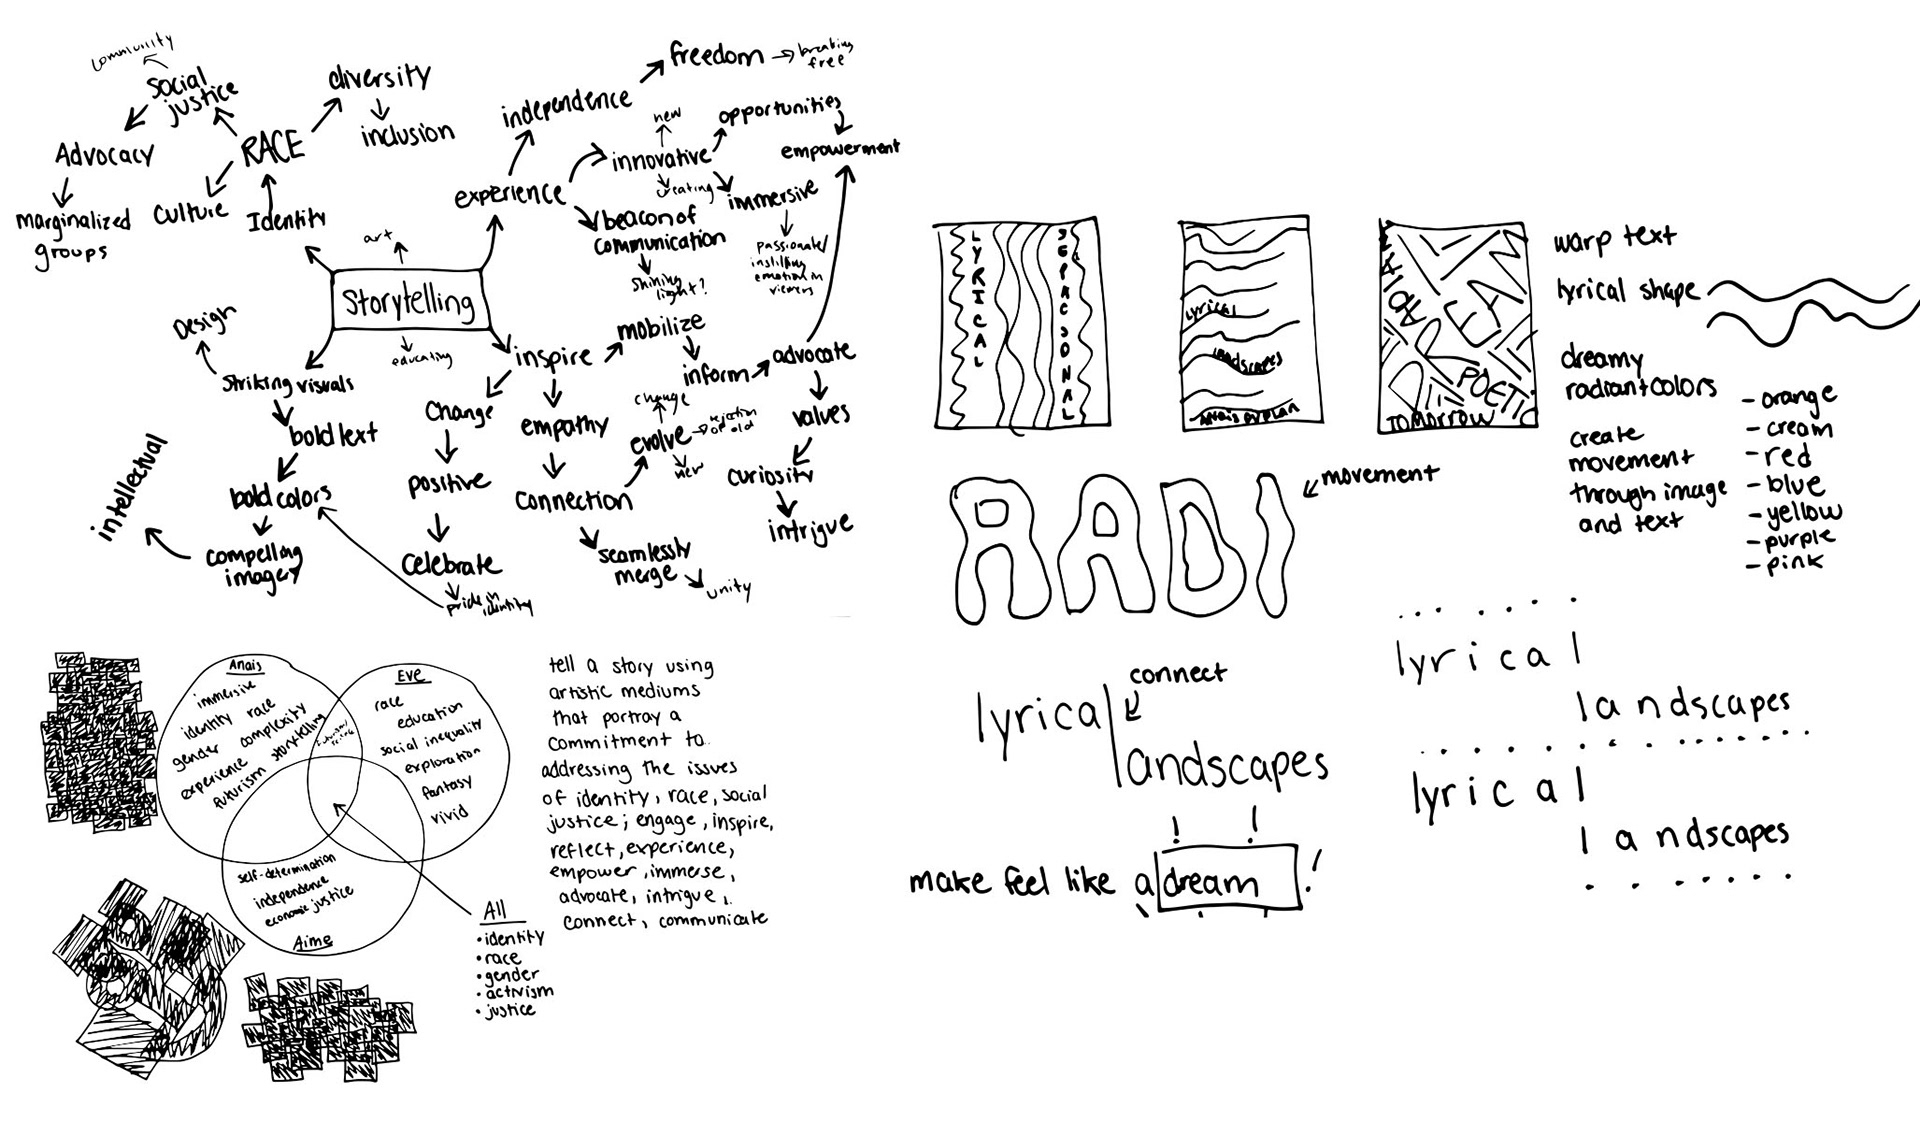 community
social
justice
diversity
inclusion
RACE
Advocacy
marginalized
groups
culture
Identity
art
Storytelling
educating
experience
independence
freedom
breaking
free
new
innovative
creating
opportunities
empowerment
immersive
passionate/
instilling
emotion in
viewers
beacon of
communication
shining
light?
Design
striking visuals
bold text
bold colors
compelling
imagery
intellectual
inspire
mobilize
inform
advocate
values
curiosity
intrigue
change
positive
celebrate
pride in
identity
empathy
connection
evolve
change
rejection
of old
new
seamlessly
merge
unity
Anais
immersive
identity race
gender complexity
experience storytelling
futurism
Eve
race
education
social inequality
exploration
fantasy
vivid
self-determination
independence
economic justice
Aime
All
• identity
• race
• gender
• activism
• justice
tell a story using
artistic mediums
that portray a
commitment to
addressing the issues
of identity, race, social
justice; engage, inspire,
reflect, experience,
empower, immerse,
advocate, intrigue,
connect, communicate
LYRICAL
lyrical
landscapes
POETIC
TOMORROW
warp text
lyrical shape
dreamy
radiant colors
- orange
- cream
- red
- blue
- yellow
- purple
- pink
create
movement
through image
and text
RADI
movement
lyrical
connect
landscapes
make feel like a dream
lyrical
landscapes
lyrical
landscapes